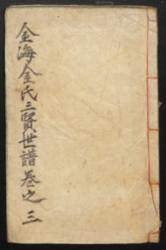 金海金氏三賢世譜卷之三